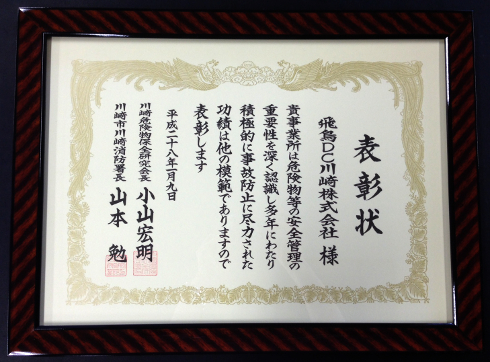 表彰状
飛鳥DC川崎株式会社 様
貴事業所は危険物等の安全管理の
重要性を深く認識し多年にわたり
積極的に事故防止に尽力された
功績は他の模範でありますので
表彰します
平成二十八年一月九日
川崎危険物保全研究会長 小山宏明
川崎市川崎消防署長 山本 勉